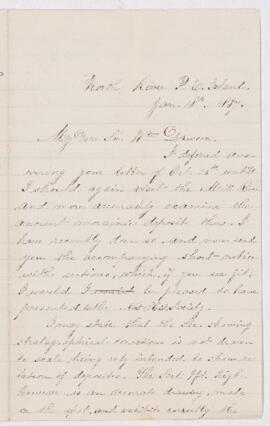 North River P. E. Island.
Jan. 18th, 1887.
My Dear Sir Wm Dawson.
I defered ans-
wering your letter of Oct. 16th until
I should again visit the Mill River
and more accurately examine the
ancient morainic deposit there. I
have recently done so, and now send
you the accompanying short notice
with sections, which, if you see fit,
I would be pleased to have
presented to the Nat. Hist. Society.
I may state that the Sec. showing
stratagraphical conditions is not drawn
to scale being only intended to show re-
lation of deposites. The Sect. 7ft. high
however is an accurate drawing, made
on the spot, and exhibits correctly the